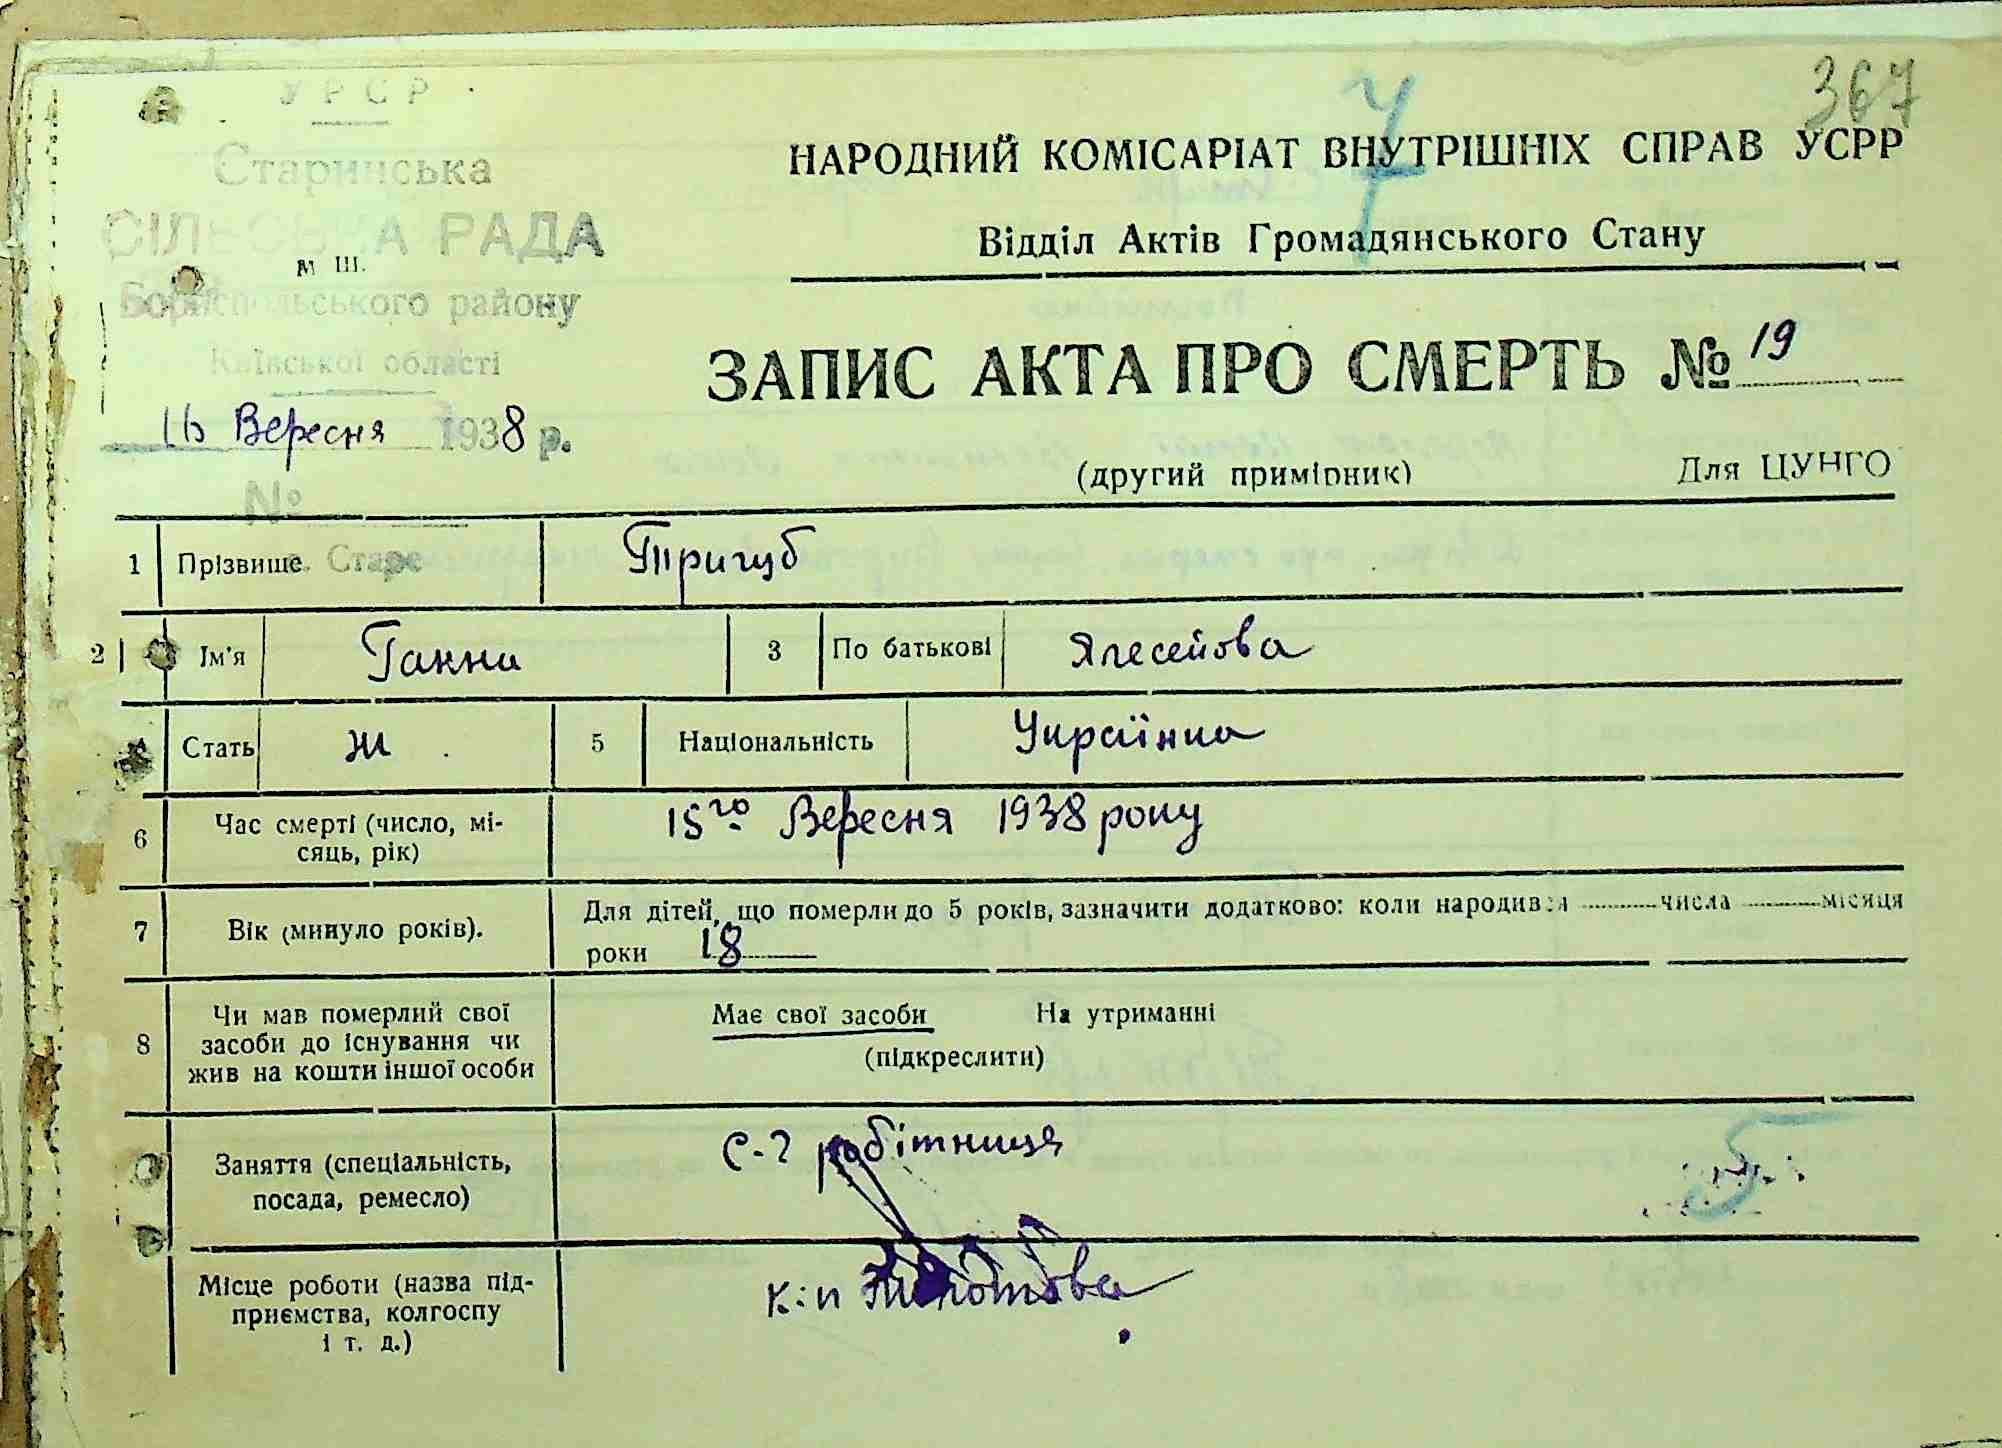 367
7
УРСР
Старинська
СІЛЬСЬКА РАДА
м III.
Бориспольського району
Київської області
16 Вересня 1938 р.
№
с. Старе
НАРОДНИЙ КОМІСАРІАТ ВНУТРІШНІХ СПРАВ УСРР
Відділ Актів Громадянського Стану
ЗАПИС АКТА ПРО СМЕРТЬ № 19
(другий примірник) Для ЦУНГО
1 Прізвище Тригуб
2 Ім'я Ганна 3 По батькові
4 Стать Ж 5 Національність Українка
6 Час смерті (число, мі-
сяць, рік) 15го Вересня 1938 року
7 Вік (минуло років). Для дітей, що померли до 5 років, зазначити додатково: коли народився числа місяця
роки 18
8 Чи мав померлий свої
засоби до існування чи
жив на кошти іншої особи
Має свої засоби На утриманні
(підкреслити)
Заняття (спеціальність,
посада, ремесло) С-г робітниця
5
Місце роботи (назва під-
приємства, колгоспу
і т. д.)